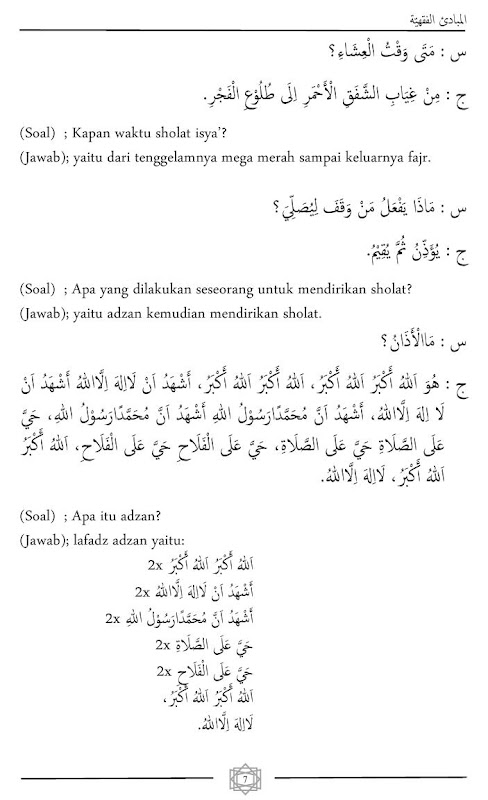 المبادئ الفقهيّة
س : مَتَى وَقْتُ الْعِشَاءِ؟
ج : مِنْ غِيَابِ الشَّفَقِ الْأَحْمَرِ اِلَى طُلُوْعِ الْفَجْرِ.
(Soal) ; Kapan waktu sholat isya’?
(Jawab); yaitu dari tenggelamnya mega merah sampai keluarnya fajr.
س : مَاذَا يَفْعَلُ مَنْ وَقَفَ لِيُصَلِّيَ؟
ج : يُؤَذِّنُ ثُمَّ يُقِيْمُ.
(Soal) ; Apa yang dilakukan seseorang untuk mendirikan sholat?
(Jawab); yaitu adzan kemudian mendirikan sholat.
س : مَاالْأَذَانْ؟
ج : هُوَ اَللهُ أَكْبَرُ اَللهُ أَكْبَرُ، اَللهُ أَكْبَرُ اَللهُ أَكْبَرُ، أَشْهَدُ اَنْ لَااِلهَ اِلَّااللهُ أَشْهَدُ اَنْ
لَا اِلهَ اِلَّااللهُ، أَشْهَدُ اَنَّ مُحَمَّدًارَسُوْلُ اللهِ أَشْهَدُ اَنَّ مُحَمَّدًارَسُوْلُ اللهِ، حَيَّ
عَلَى الصَّلَاةِ حَيَّ عَلَى الصَّلَاةِ، حَيَّ عَلَى الْفَلَاحِ حَيَّ عَلَى الْفَلَاحِ، اَللهُ أَكْبَرُ
اَللهُ أَكْبَرُ، لَااِلهَ اِلَّااللهُ.
(Soal) ; Apa itu adzan?
(Jawab); lafadz adzan yaitu:
اَللهُ أَكْبَرُ اَللهُ أَكْبَرُ 2x
أَشْهَدُ اَنْ لَااِلهَ اِلَّااللهُ 2x
أَشْهَدُ اَنَّ مُحَمَّدًارَسُوْلُ اللهِ 2x
حَيَّ عَلَى الصَّلَاةِ 2x
حَيَّ عَلَى الْفَلَاحِ 2x
اَللهُ أَكْبَرُ اَللهُ أَكْبَرُ،
لَااِلهَ اِلَّااللهُ.
7